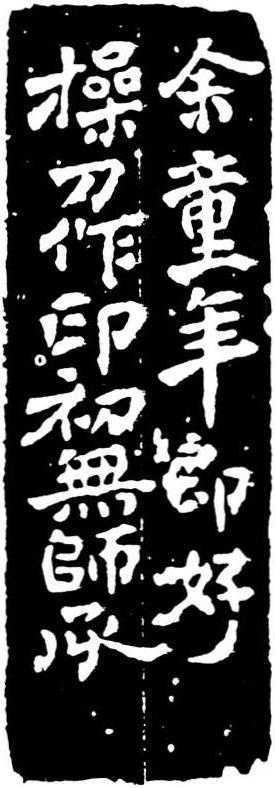 余童年即好
操刀作印初無師承